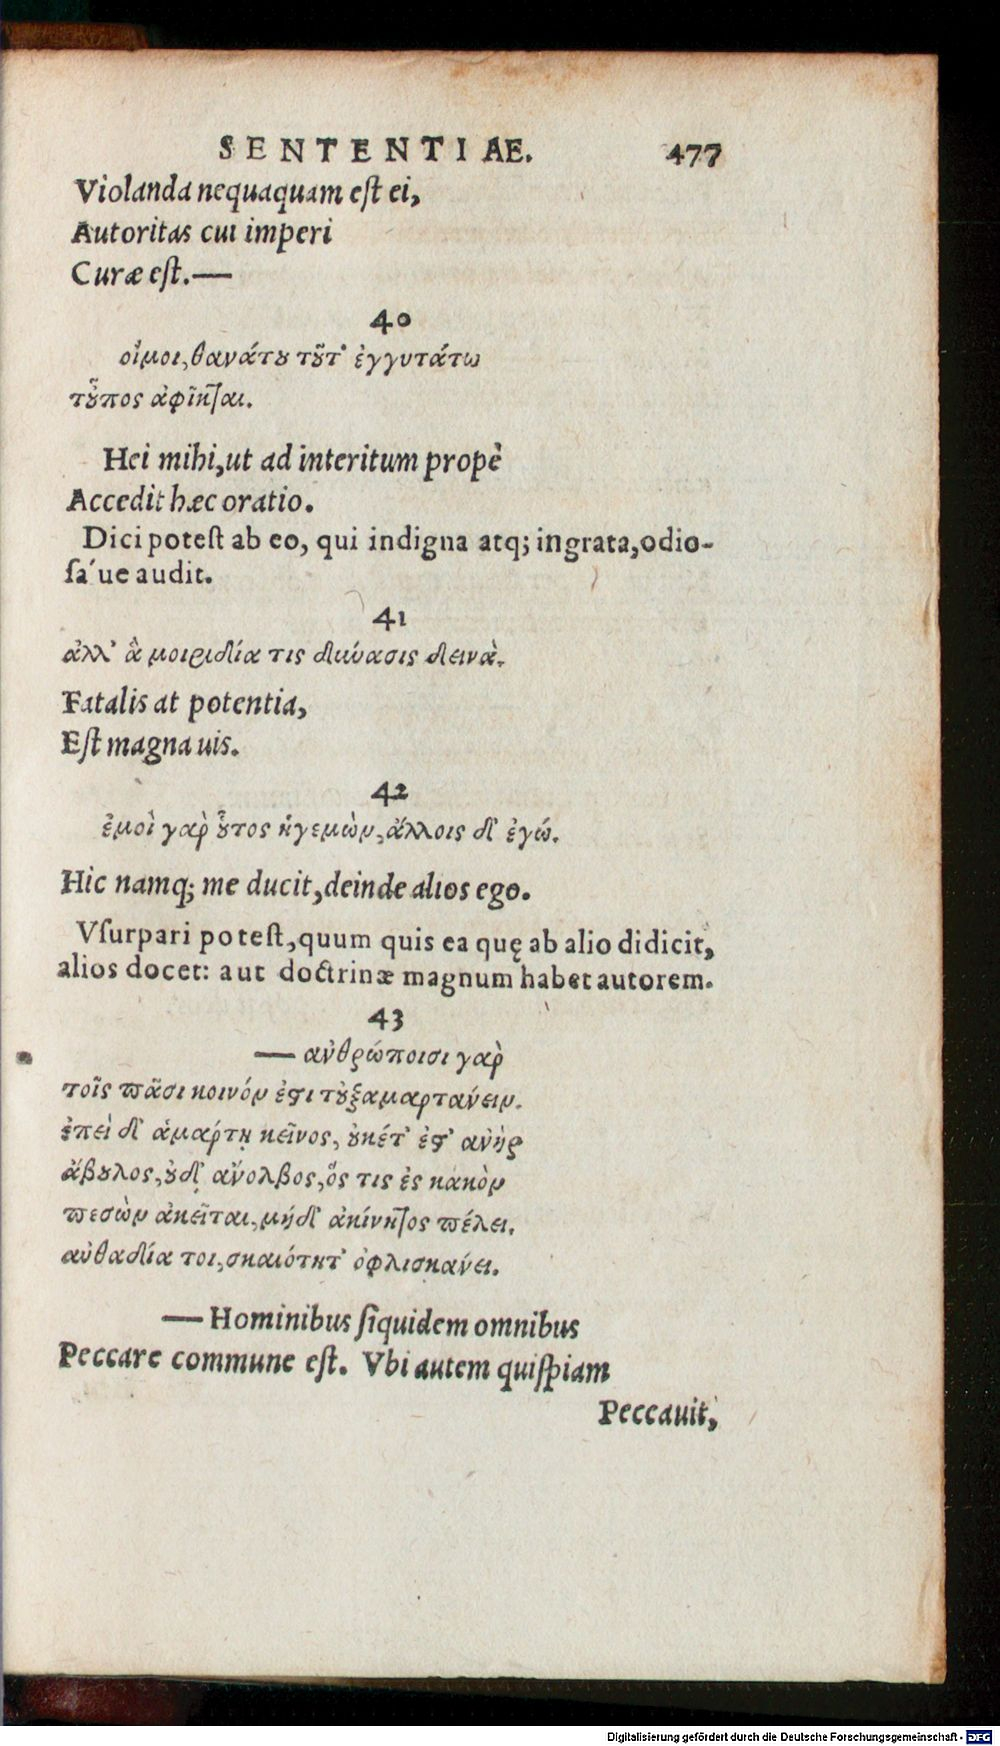 SENTENTIAE. 477
Violanda nequaquam est ei,
Autoritas cui imperi
Curæ est.—
40
οἴμοι, θανάτου τοῦτ' ἐγγυτάτω
τοὖπος ἀφῖκται.
Hei mihi, ut ad interitum propè
Accedit hæc oratio.
Dici potest ab eo, qui indigna atq; ingrata, odio-
sa´ue audit.
41
ἀλλ' ἃ μοιριδία τις δύνασις δεινὰ.
Fatalis at potentia,
Est magna uis.
42
ἐμοὶ γαρ̀ οὗτος ἡγεμὼν, ἄλλοις δ' ἐγώ.
Hic namq; me ducit, deinde alios ego.
Vsurpari potest, quum quis ea quę ab alio didicit,
alios docet: aut doctrinæ magnum habet autorem.
43
— ανθρώποισι γαρ̀
τοῖς πᾶσι κοινόν ἐστι τοὐξαμαρτάνειν.
ἐπεὶ δ' ἁμάρτῃ κεῖνος, οὐκέτ' ἔστ' ανὴρ
ἄβουλος, οὐδ' ἄνολβος, ὅς τις ἐς κακὸν
πεσὼν ἀκεῖται, μήδ' ἀκίνητος πέλει.
αὐθαδία τοι, σκαιότητ' ὀφλισκάνει.
—Hominibus siquidem omnibus
Peccare commune est. Vbi autem quispiam
Peccauit,
Digitalisierung gefördert durch die Deutsche Forschungsgemeinschaft - DFG